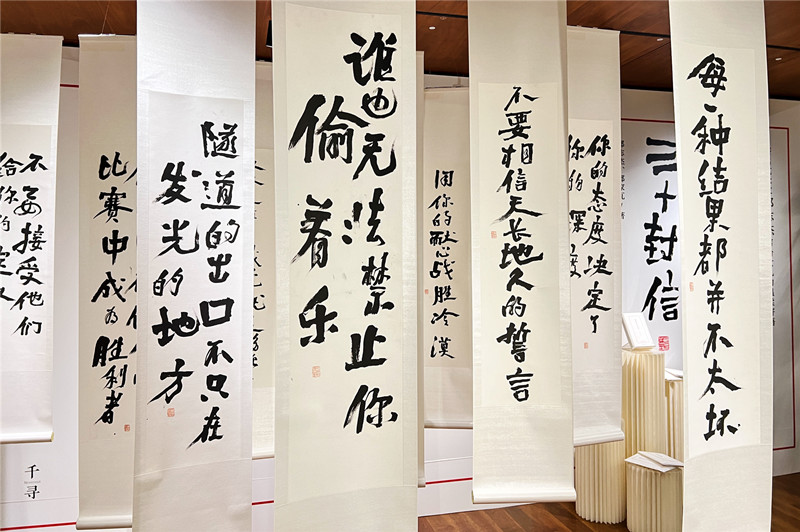 不要接受他们
给你的定义
比赛中成为胜利者
隧道的出口不只在
发光的地方
谁也无法禁止你
偷着乐
用你的耐心战胜冷漠
不要相信天长地久的誓言
你的态度决定了
你的深度
三十封信
每一种结果都并不太坏
千寻